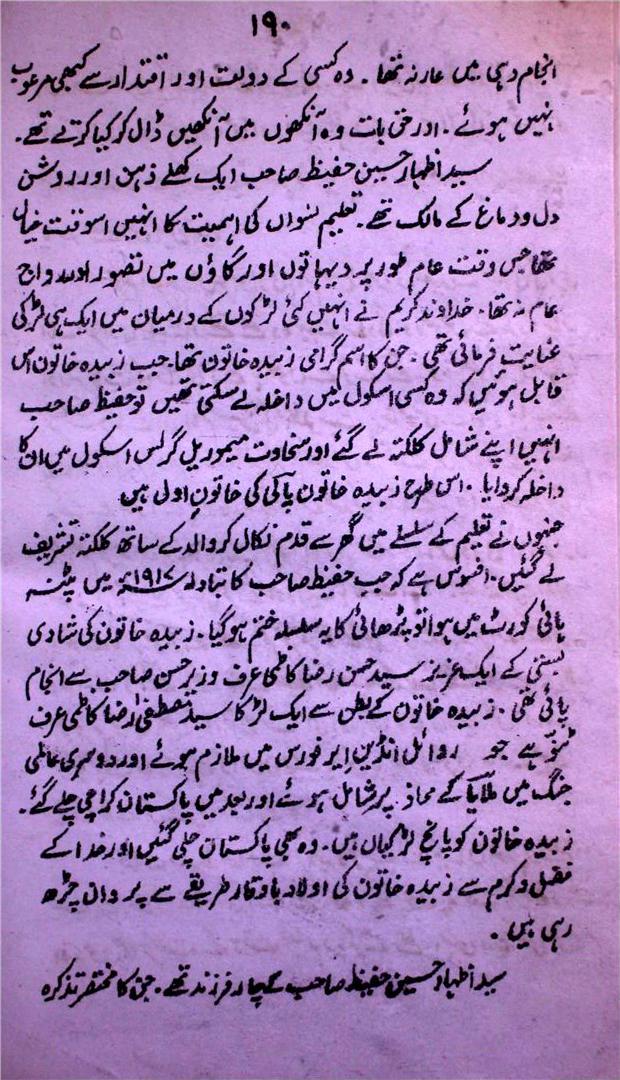 ۱۹۰
انجام دہی میں عار نہ تھا۔ وہ کسی کے دولت اور اقتدار سے کبھی مرعوب
نہیں ہوئے۔ اور حق بات وہ آنکھوں میں آنکھیں ڈال کر کیا کرتے تھے۔
سید اظہار حسین حفیظ صاحب ایک کھلے ذہن اور روشن
دل و دماغ کے مالک تھے۔ تعلیم نسواں کی اہمیت کا انہیں اسوقت خیال
تھا جس وقت عام طور پر دیہاتوں اور گاؤں میں تصور اور رواج
عام نہ تھا۔ خداوند کریم نے انہیں کئی لڑکوں کے درمیان میں ایک ہی لڑکی
عنایت فرمائی تھی۔ جن کا اسم گرامی زبیدہ خاتون تھا۔ جب زبیدہ خاتون اس
قابل ہوئیں کہ وہ کسی اسکول میں داخلہ لے سکتی تھیں تو حفیظ صاحب
انہیں اپنے شامل کلکتہ لے گئے اور سخاوت میموریل گرلس اسکول میں ان کا
داخلہ کروایا۔ اس طرح زبیدہ خاتون پالی کی خاتون اولی ہیں
جنہوں نے تعلیم کے سلسلے میں گھر سے قدم نکال کر والد کے ساتھ کلکتہ تشریف
لے گئیں۔ افسوس ہے کہ جب حفیظ صاحب کا تبادلہ ۱۹۱۷ء میں پٹنہ
ہائی کورٹ میں ہوا تو پڑھائی کا یہ سلسلہ ختم ہو گیا۔ زبیدہ خاتون کی شادی
بستی کے ایک عزیز سید حسن رضا کاظمی عرف وزیر حسن صاحب سے انجام
پائی تھی۔ زبیدہ خاتون کے بطن سے ایک لڑکا سید مصطفیٰ رضا کاظمی عرف
ہے جو روائل انڈین ایر فورس میں ملازم ہوئے اور دوسری عالمی
جنگ میں ملایا کے محاذ پر شامل ہوئے اور بعد میں پاکستان کراچی چلے گئے۔
زبیدہ خاتون کو پانچ لڑکیاں ہیں۔ وہ بھی پاکستان چلی گئیں اور خدا کے
فضل و کرم سے زبیدہ خاتون کی اولاد باوقار طریقے سے پروان چڑھ
رہی ہیں۔
سید اظہار حسین حفیظ صاحب کے چار فرزند تھے۔ جن کا مختصر تذکرہ